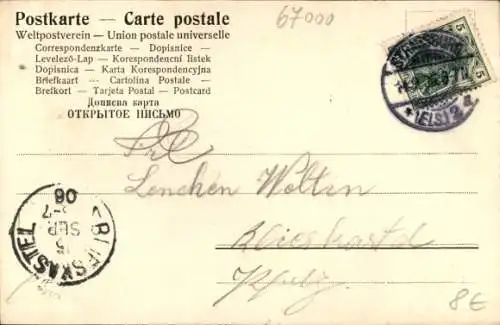 Postkarte — Carte postale
Weltpostverein — Union postale universelle
Correspondenzkarte — Dopisnice
Levelező-Lap — Korespondenční lístek
Dopisnica — Karta Korespondencyjna
Briefkaart — Cartolina Postale
Brefkort — Tarjeta Postal — Postcard
Дописна карта
ОТКРЫТОЕ ПИСЬМО
67000
5 5
STRASSBURG
* (ELS.) 2 a
Frl.
Lenchen Welten
Blieskastel
Pfalz
BLIESKASTEL
SEP.
06
8€